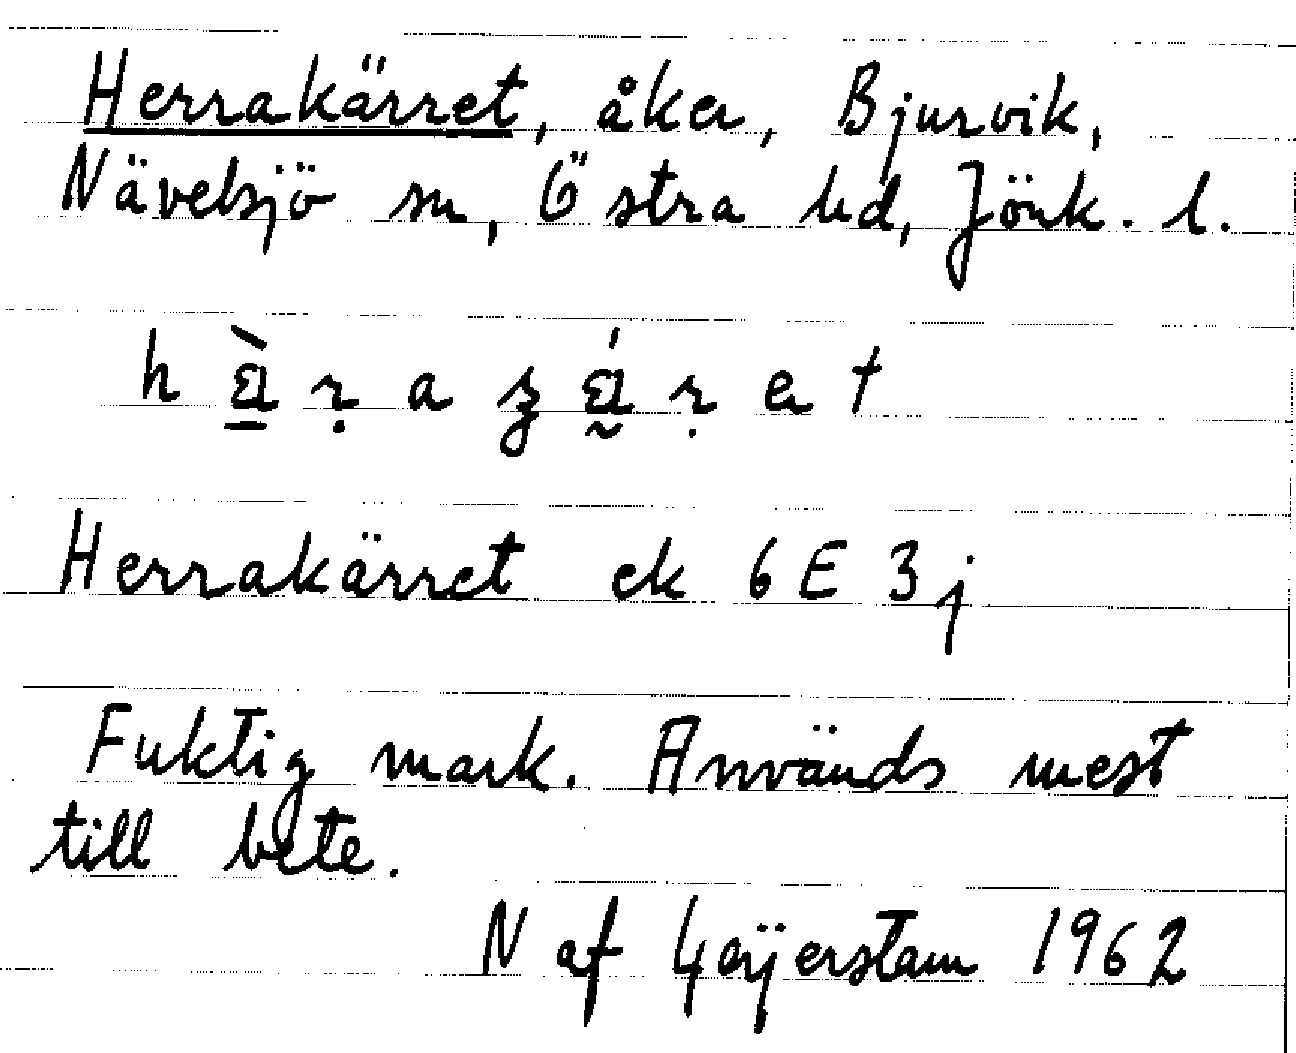 Herrakärret, åker, Bjurvik,
Nävelsjö sn, Östra hd, Jönk. l.
Herrakärret ek 6E 3j
Fuktig mark. Används mest
till bete.
N af Geijerstam 1962